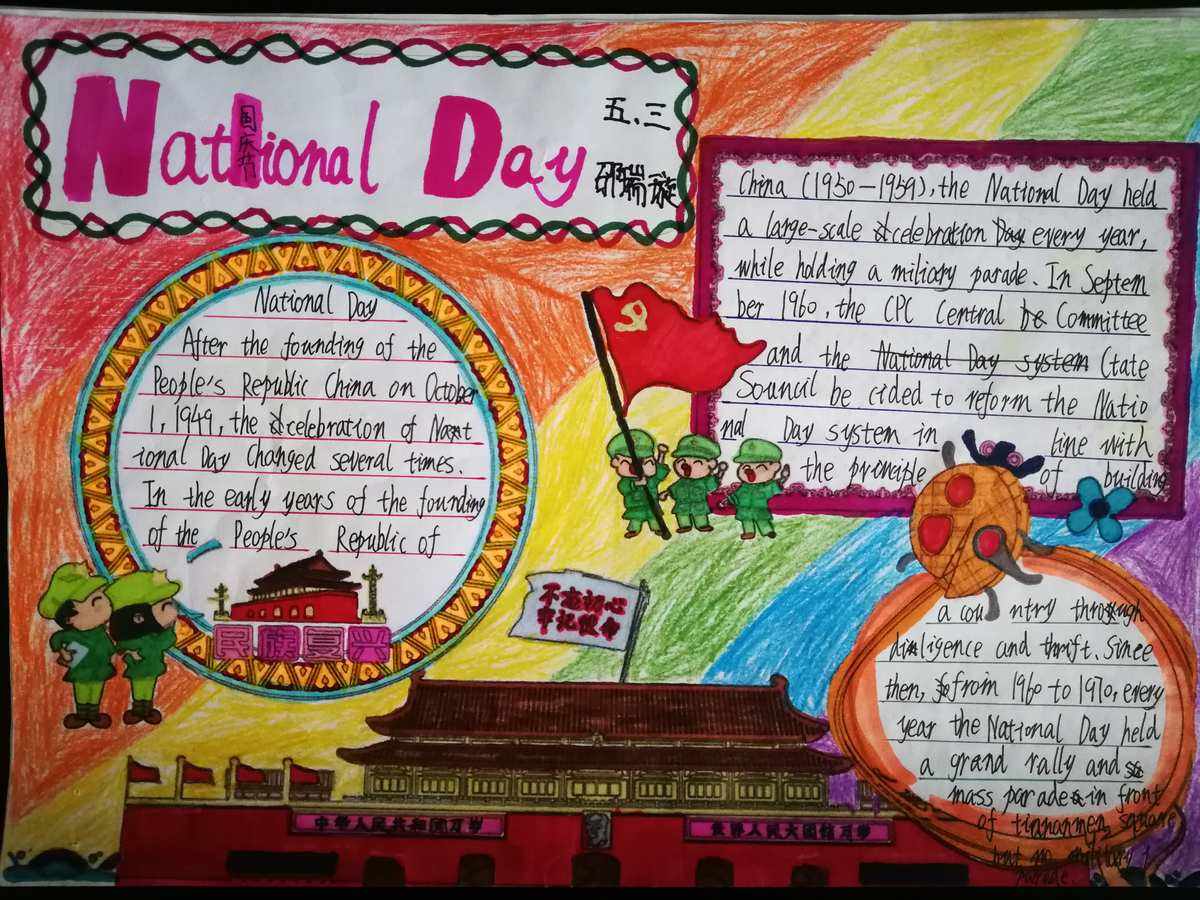 National Day
国庆节
五、三
邵瑞璇
National Day
After the founding of the
People's Republic China on October
1, 1949, the celebration of Nat
ional Day Changed several times.
In the early years of the founding
of the People's Republic of
民族复兴
China (1950—1959), the National Day held
a large-scale celebration every year,
while holding a miliary parade. In Septem
ber 1960, the CPC Central Committee
and the National Day system Ctate
Souncil be cided to reform the Natio
nal Day system in line with
the principle of building
a cou ntry through
diligence and thrift. Since
then, from 1960 to 1970, every
year the National Day held
a grand rally and
mass parade in front
of tiananmen square
but no military
parade.
不忘初心
牢记使命
中华人民共和国万岁
世界人民大团结万岁